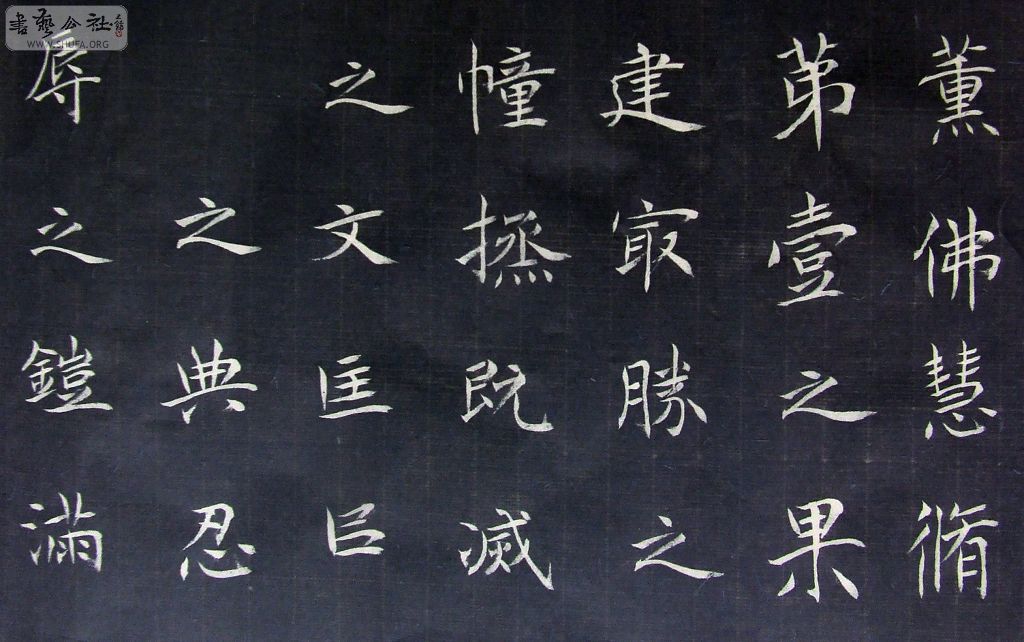 薫佛慧脩
苐壹之果
建冣勝之
幢拯既滅
之文匡巨
之典忍
辱之鎧滿
書藝公社
WWW.SHUFA.ORG